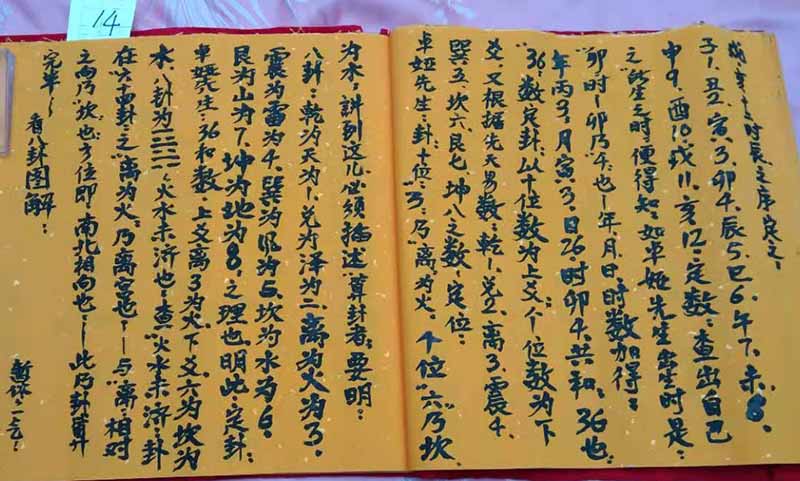 14
戌、亥十二时辰之序定之：
子1、丑2、寅3、卯4、辰5、巳6、午7、未8、
申9、酉10、戌11、亥12、定数：查出自己
之"出生之时"便得知：如卓娅先生出生时是：
"卯时"—"卯乃"4"也—年、月、日、时数加得：
年丙3、月寅3、日26、时卯4、共和36也
"36"数定卦：以十位数为上爻：个位数为下
爻又根据先天易数：乾1、兑2、离3、震4、
巽五、坎六、艮七、坤八之数定位：
卓娅先生：卦：十位："3"乃"离为火、个位"六"乃坎
为水，讲到这儿必须描述算卦者：要明：
八卦：乾为天为1、兑为泽为二、离为火为3、
震为雷为4、巽为风为5、坎为水为6、
艮为山为7、坤为地为8、之理也、明此：定卦：
卓娅先生：36和数、上爻离3为火下爻六为坎为
水、八卦为 火水未济也：查"火水未济：卦
在"六十四卦：之"离为火：乃离宫也：—与"离：相对
之向乃"坎：也：方位即"南北相向也—此乃卦算
完毕—
看八卦图解：
暂休一乞：